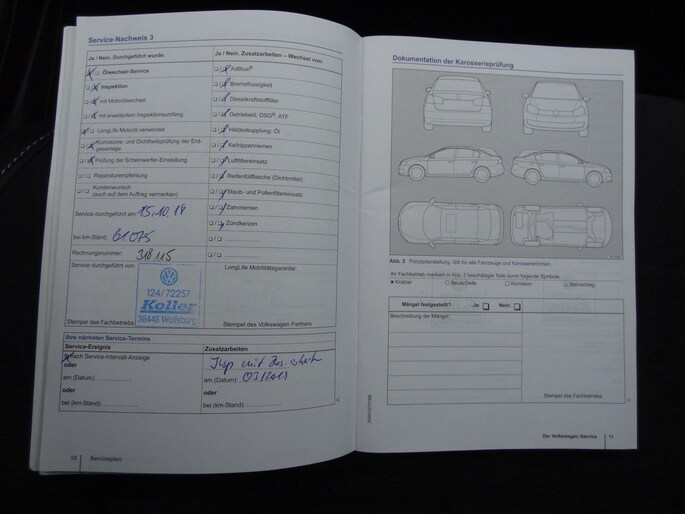 Service-Nachweis 3
Ja / Nein, Durchgeführt wurde:
Ölwechsel-Service
Inspektion
mit Motorölwechsel
mit erweitertem Inspektionsumfang
LongLife Motoröl verwendet
Korrosions- und Dichtheitsprüfung der Erd-
gasanlage
Prüfung der Scheinwerfer-Einstellung
Reparaturempfehlung
Kundenwunsch
(auch auf dem Auftrag vermerken)
Service durchgeführt am: 15.10.18
bei km-Stand: 61075
Rechnungsnummer: 318115
Service durchgeführt von:
124/72257
Koller
38448 Wolfsburg
Stempel des Fachbetriebs
Ja / Nein, Zusatzarbeiten – Wechsel von:
AdBlue®
Bremsflüssigkeit
Dieselkraftstofffilter
Getriebeöl: DSG®, ATF
Haldexkupplung: Öl
Keilrippenriemen
Luftfiltereinsatz
Reifenfüllflasche (Dichtmittel)
Staub- und Pollenfiltereinsatz
Zahnriemen
Zündkerzen
LongLife Mobilitätsgarantie:
Stempel des Volkswagen Partners
Ihre nächsten Service-Termine
Service-Ereignis
nach Service-Intervall-Anzeige
oder
am (Datum):
oder
bei (km-Stand):
Zusatzarbeiten
Insp mit
am (Datum): 03/2019
oder
bei (km-Stand):
10 Serviceplan
Dokumentation der Karosserieprüfung
Abb. 5 Prinzipdarstellung. Gilt für alle Fahrzeuge und Karosserieformen.
Ihr Fachbetrieb markiert in Abb. 5 beschädigte Teile durch folgende Symbole:
Kratzer Beule/Delle Korrosion Steinschlag
Mängel festgestellt? Ja: Nein:
Beschreibung der Mängel:
Stempel des Fachbetriebs
Der Volkswagen Service